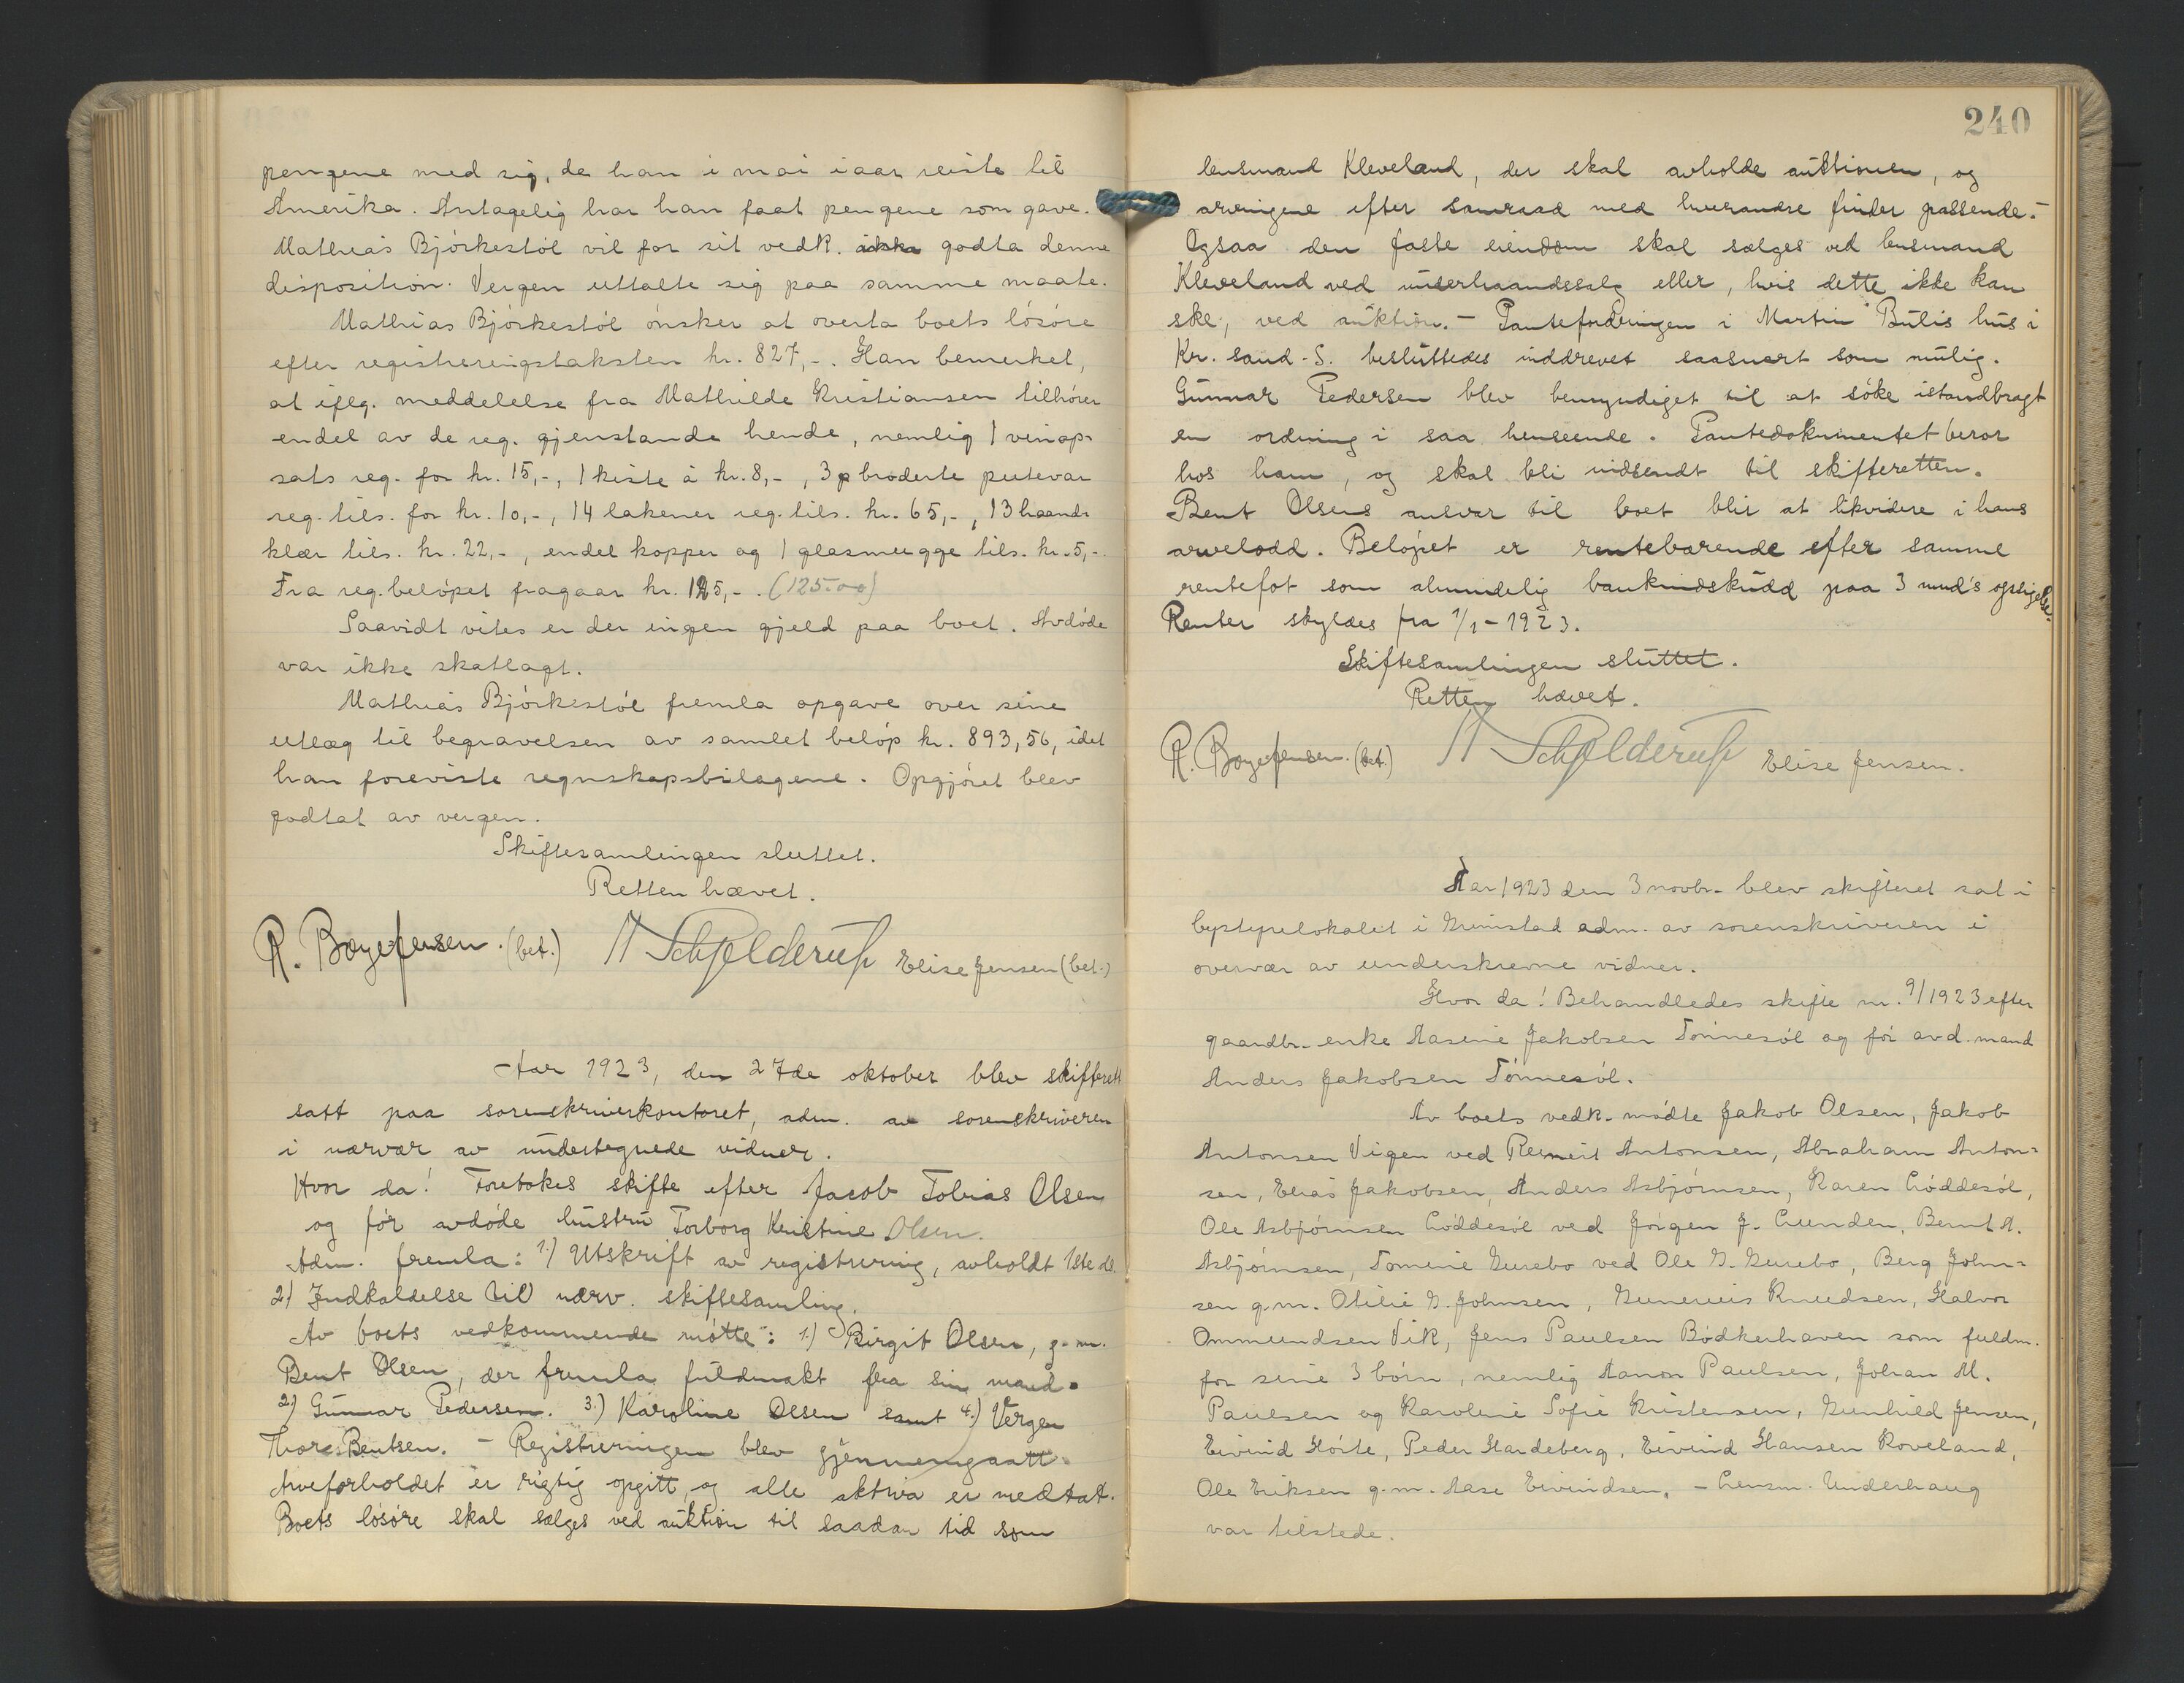 pengene med sig, da han i mai iaar reiste til
Amerika. Antagelig har han faat pengene som gave.
Mathias Bjørkestøl vil for sit vedk. ikke godta denne
disposition. Vergen uttalte sig paa samme maate.
Mathias Bjørkestøl ønsker at overta boets løsøre
efter registreringstaksten kr. 827,-. Han bemerket,
at iflg. meddelelse fra Mathilde Kristiansen tilhører
endel av de reg. gjenstande hende, nemlig 1 vinop-
sats reg. for kr. 15,-, 1 kiste á kr. 8,-, 3 p broderte putevar
reg. tils. for kr. 10,-, 14 lakener reg. tils. kr. 65,-, 13 haand-
klær tils. kr. 22,-, endel kopper og 1 glasmugge tils. kr. 5,-.
Fra reg.beløpet fragaar kr. 125,-. (125.00)
Saavidt vites er der ingen gjeld paa boet. Avdøde
var ikke skatlagt.
Mathias Bjørkestøl fremla opgave over sine
utlæg til begravelsen av samlet beløp kr. 893,56, idet
han foreviste regnskapsbilagene. Opgjøret blev
godtat av vergen.
Skiftesamlingen sluttet.
Retten hævet.
R. Boyejensen. (bet.) Schjelderup Elise Jensen (bet.)
Aar 1923, den 27de oktober blev skifterett
satt paa sorenskriverkontoret, adm. av sorenskriveren
i nærvær av undertegnede vidner.
Hvor da! Foretokes skifte efter Jacob Tobias Olsen
og før avdøde hustru Torborg Kristine Olsen.
Adm. fremla: 1.) Utskrift av registrering, avholdt 1ste ds.
2) Indkaldelse til nærv. skiftesamling.
Av boets vedkommende møtte: 1.) Birgit Olsen, g. m.
Bent Olsen, der fremla fuldmakt fra sin mand.
2.) Gunnar Pedersen. 3.) Karoline Olsen samt 4.) Vergen
Thore Bentsen. - Registreringen blev gjennemgaatt.
Arveforholdet er rigtig opgitt, og alle aktiva er medtat.
Boets løsøre skal sælges ved auktion til saadan tid som
240
lensmand Kleveland, der skal avholde auktionen, og
arvingene efter samraad med hverandre finder passende.-
Ogsaa den faste eiendom skal sælges ved lensmand
Kleveland ved underhaandssalg eller, hvis dette ikke kan
ske, ved auktion. - Pantefordringen i Martin Bulis hus i
Kr. sand. S. besluttedes inddrevet saasnart som mulig.
Gunnar Pedersen blev bemyndiget til at søke istandbragt
en ordning i saa henseende. Pantedokumentet beror
hos ham, og skal bli indsendt til skifteretten.
Bent Olsens ansvar til boet blir at likvidere i hans
arvelodd. Beløpet er rentebærende efter samme
rentefot som almindelig bankindskudd paa 3 mnd's opsigelse.
Renter skyldes fra 1/1 - 1923.
Skiftesamlingen sluttet.
Retten hævet.
R. Boyejensen. (bet.) Schjelderup Elise Jensen.
Aar 1923 den 3 novbr. blev skifteret sat i
bystyrelokalet i Grimstad adm. av sorenskriveren i
overvær av underskrevne vidner.
Hvor da! Behandledes skifte nr. 9/1923 efter
gaardbr. enke Aasine Jakobsen Tønnesøl og før avd. mand
Anders Jakobsen Tønnesøl.
Av boets vedk. mødte Jakob Olsen, Jakob
Antonsen Vigen ved Reinert Antonsen, Abraham Anton-
sen, Elias Jakobsen, Anders Asbjørnsen, Karen Løddesøl,
Ole Asbjørnsen Løddesøl ved Jørgen J. Lunden, Bernt A.
Asbjørnsen, Tomine Gurebo ved Ole G. Gurebo, Berg John-
sen g.m. Otilie G. Johnsen, Gunerius Knudsen, Halvor
Ommundsen Vik, Jens Paulsen Bødkerhaven som fuldm.
for sine 3 børn, nemlig Aanon Paulsen, Johan M.
Paulsen og Karoline Sofie Kristensen, Gunhild Jensen,
Eivind Hørte, Peder Hardeberg, Eivind Hansen Roveland,
Ole Eriksen g.m. Aase Eivindsen. - Lensm. Underhaug
var tilstede.